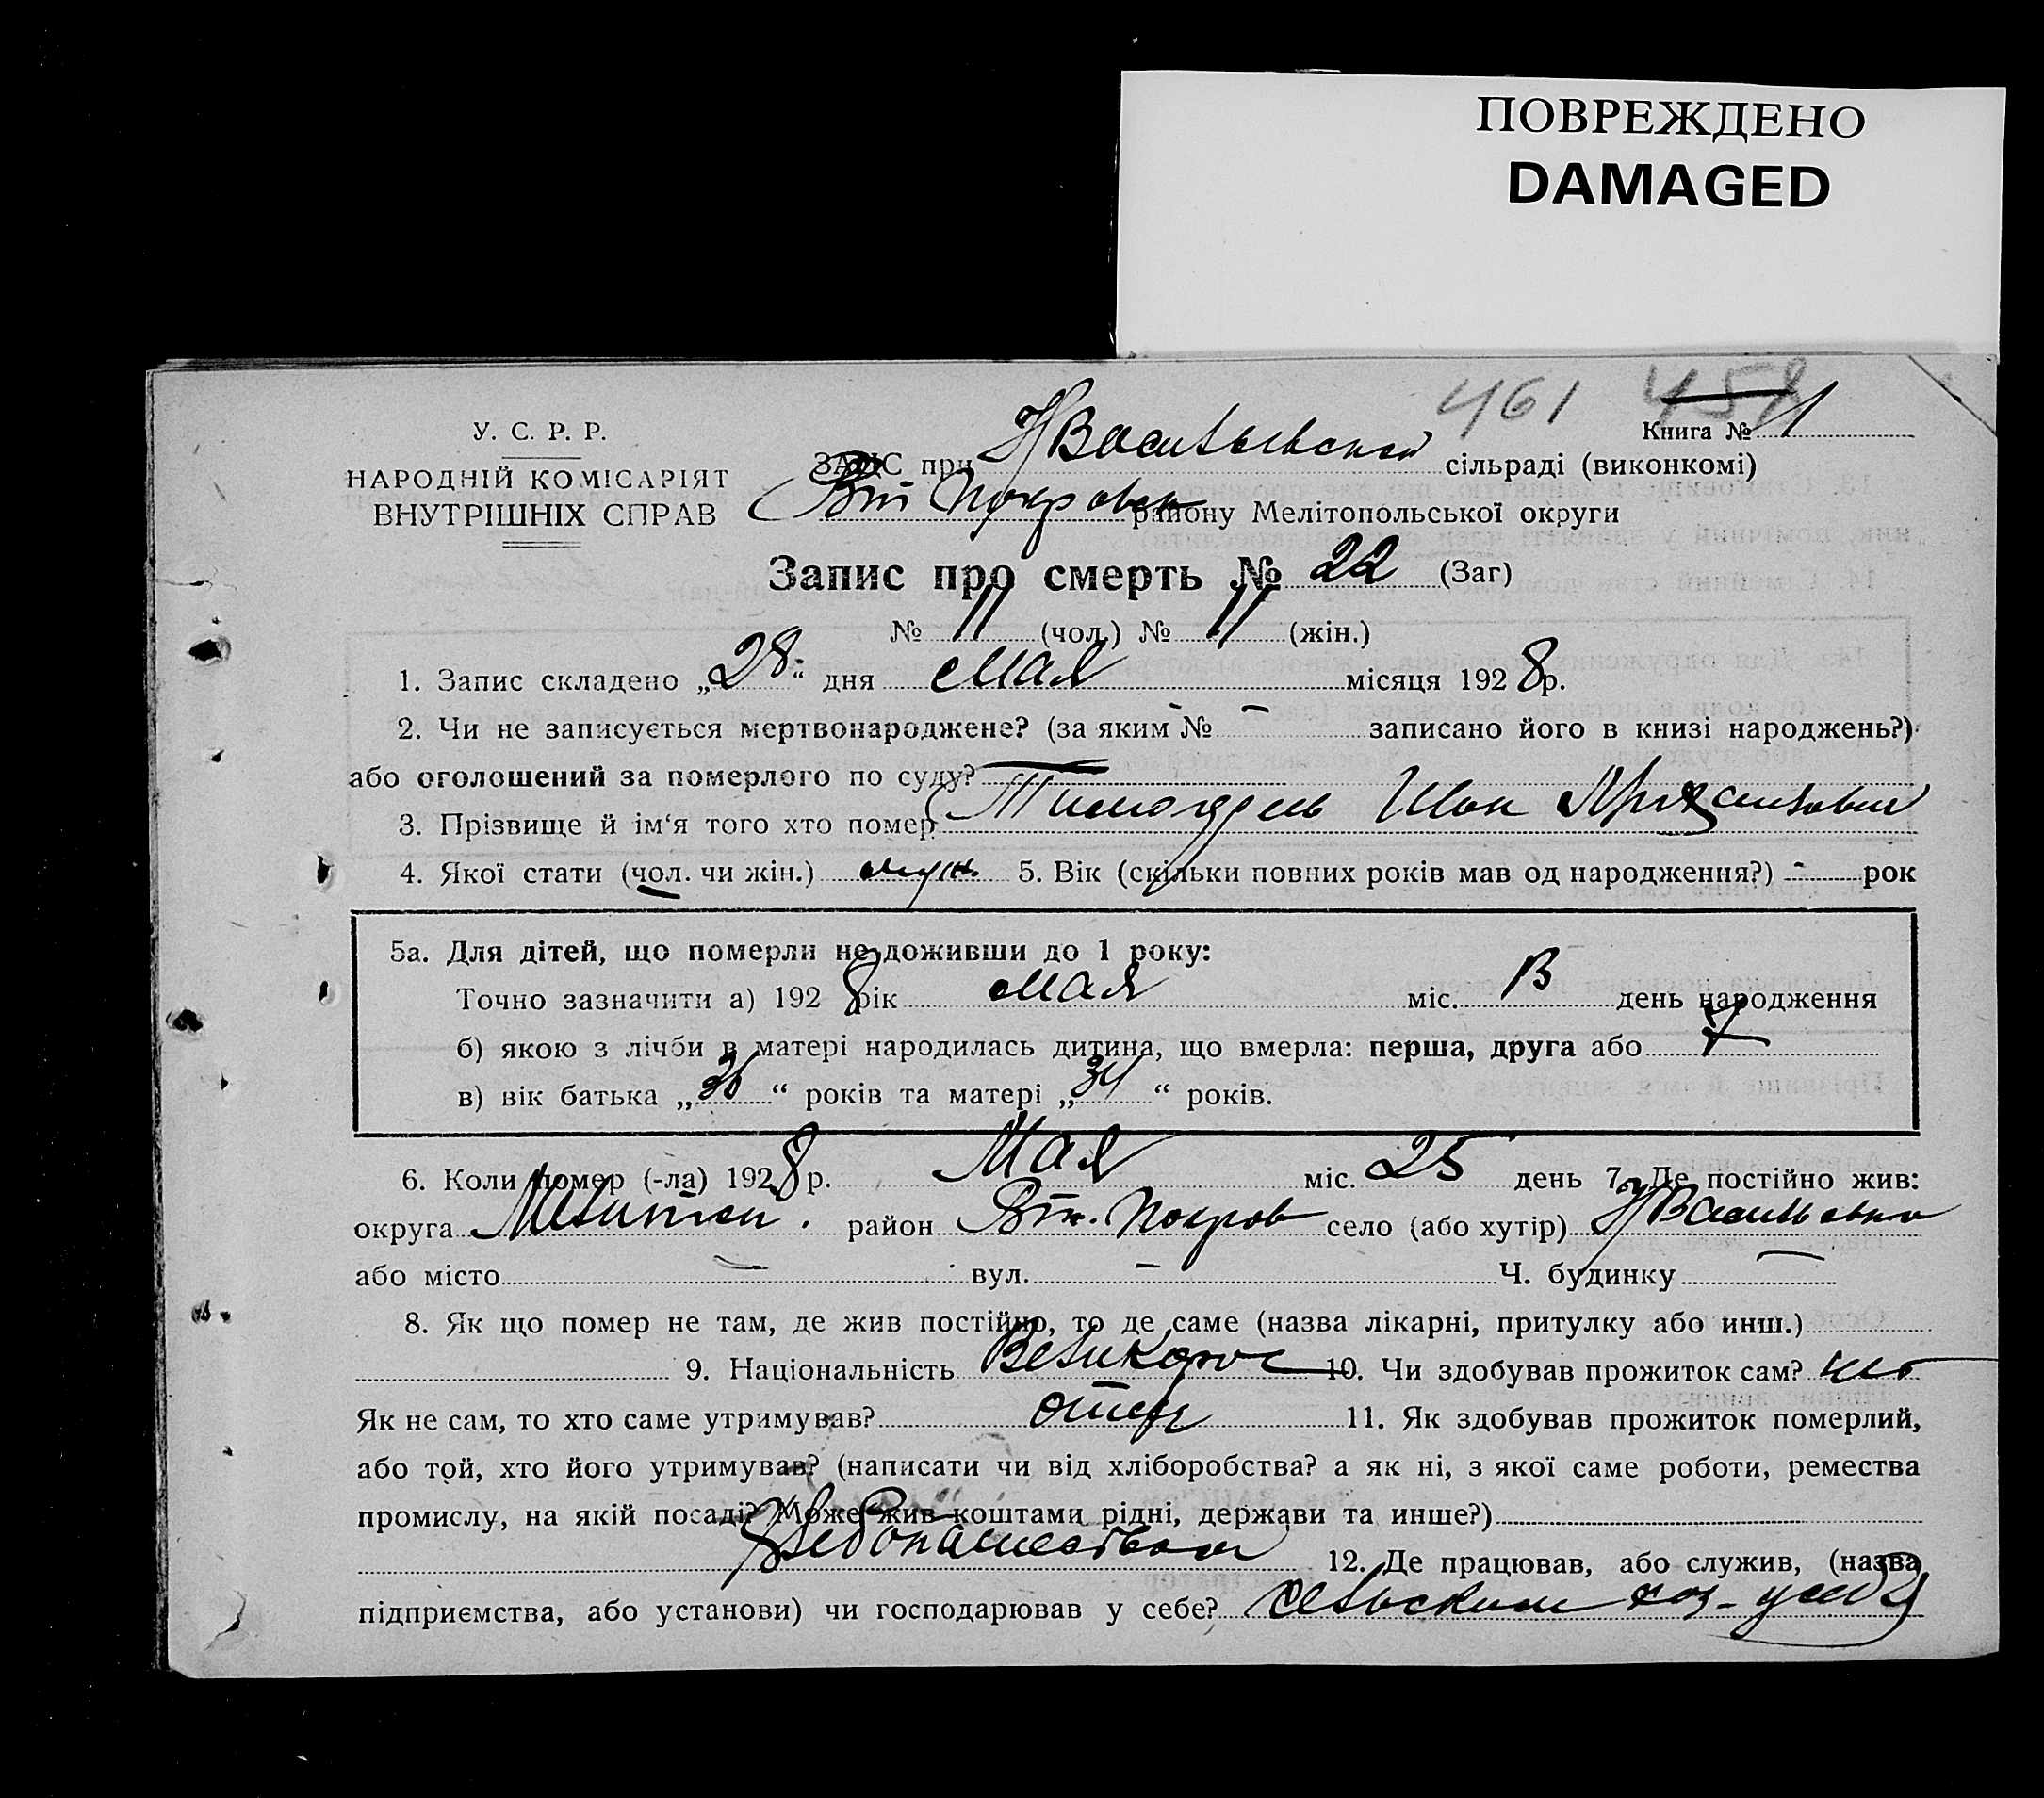 ПОВРЕЖДЕНО
DAMAGED
461 458
Книга № 1
У. С. Р. Р.
НАРОДНІЙ КОМІСАРІЯТ
ВНУТРІШНІХ СПРАВ
ЗАПИС при Н Васильевской сільраді (виконкомі)
Вт Покровск району Мелітопольської округи
Запис про смерть № 22 (Заг)
№ 11 (чол.) № 11 (жін.)
1. Запис складено „28“ дня Мая місяця 1928 р.
2. Чи не записується мертвонароджене? (за яким № – записано його в книзі народжень?)
або оголошений за померлого по суду? —
3. Прізвище й ім‘я того хто помер
4. Якої стати (чол. чи жін.) муж. 5. Вік (скільки повних років мав од народження?) - рок
5а. Для дітей, що померли не доживши до 1 року:
Точно зазначити а) 1928 рік Мая міс. 13 день народження
б) якою з лічби в матері народилась дитина, що вмерла: перша, друга або 7
в) вік батька „36“ років та матері „34“ років.
6. Коли помер (-ла) 1928 р. Мая міс. 25 день 7. Де постійно жив:
округа Мелитоп. район Вт. Покров село (або хутір) Н Васильевка
або місто — вул. — Ч. будинку —
8. Як що помер не там, де жив постійно, то де саме (назва лікарні, притулку або инш.)
9. Національність Великорос 10. Чи здобував прожиток сам? нет
Як не сам, то хто саме утримував? отец 11. Як здобував прожиток померлий,
або той, хто його утримував? (написати чи від хліборобства? а як ні, з якої саме роботи, ремества
промислу, на якій посаді? Може жив коштами рідні, держави та инше?)
Хлебопашеством 12. Де працював, або служив, (назва
підприємства, або установи) чи господарював у себе? сельским хоз- у себя